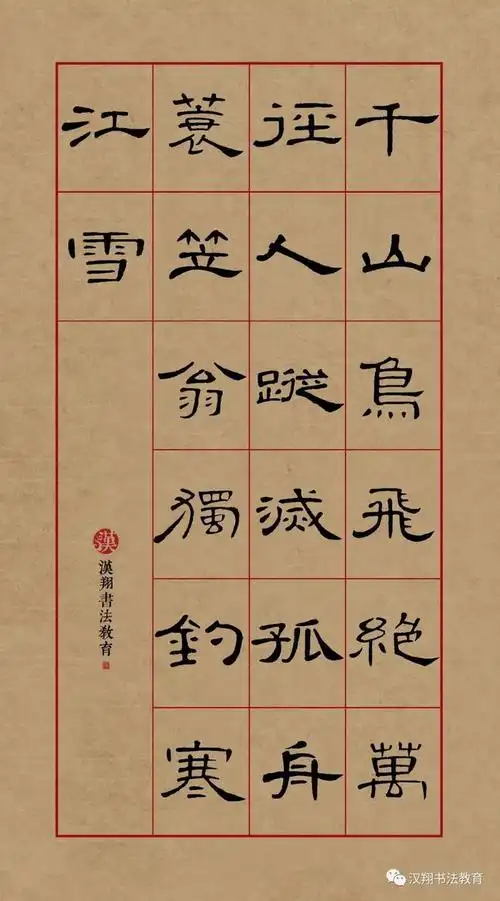 千山鳥飛絶萬
徑人蹤滅孤舟
蓑笠翁獨釣寒
江雪
漢
漢翔書法教育
汉翔书法教育